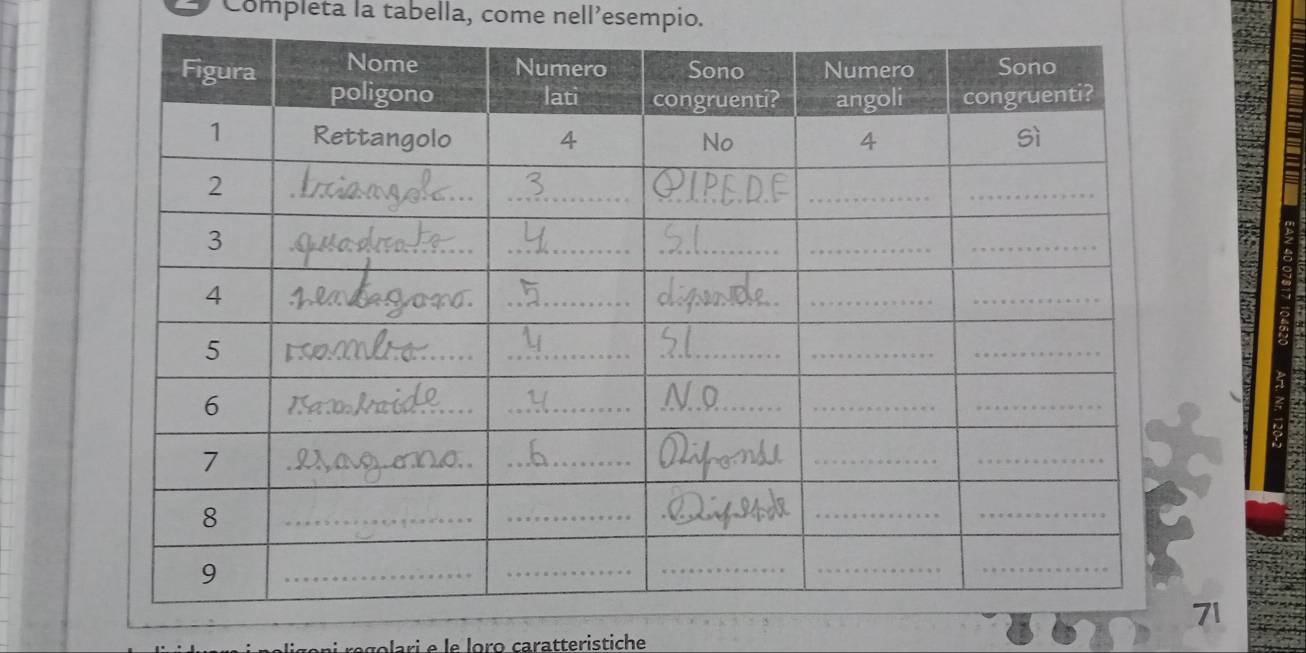 Completa la tabella, come nell'esempio.
Figura Nome poligono Numero lati Sono congruenti? Numero angoli Sono congruenti?
1 Rettangolo 4 No 4 Sì
2 triangolo 3 DIPEDE
3 quadrato 4 SI
4 pentagono 5 dipende
5 rombo 4 SI
6 romboide 4 NO
7 esagono 6 Dipende
8 Dipende
9
71
i poligoni regolari e le loro caratteristiche
EAN 40 07817 104620 Art. Nr. 120-2